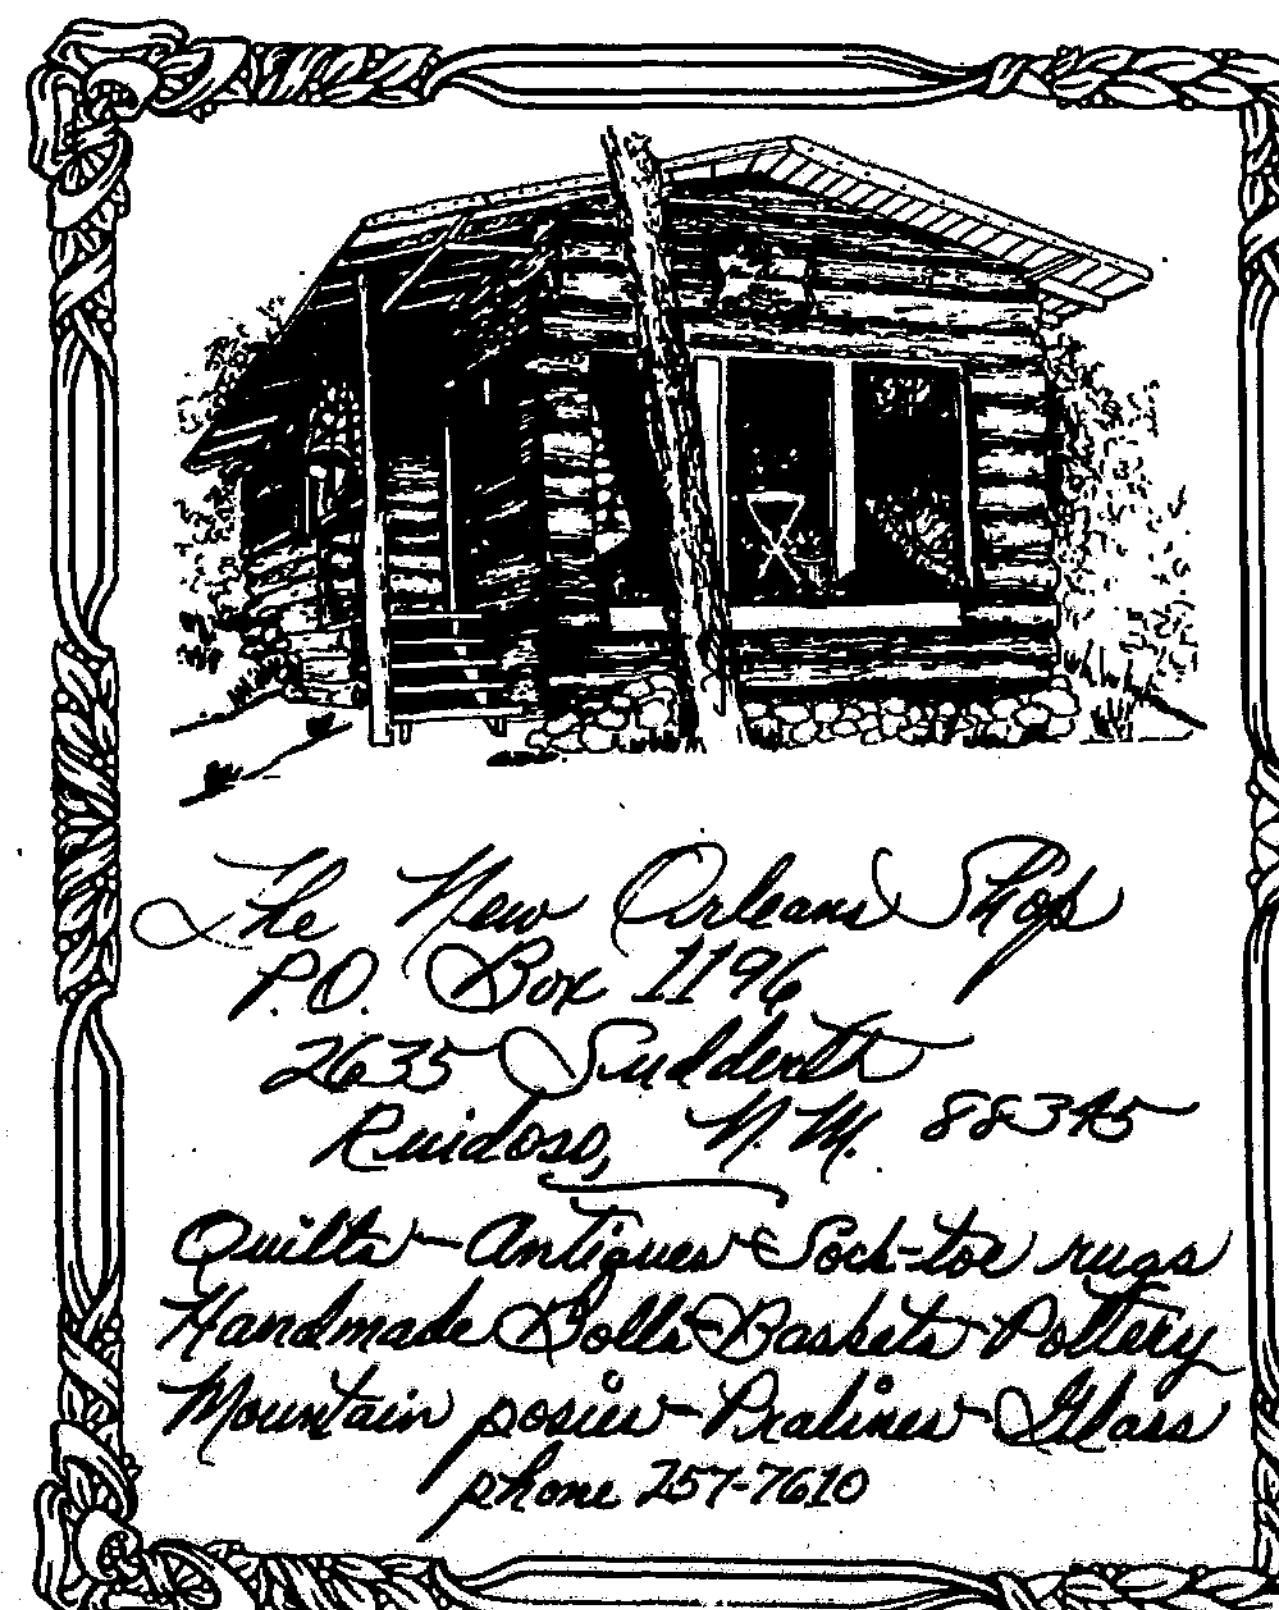 The New Orleans Shop
P.O. Box 1196
2635 Sudderth
Ruidoso, N.M. 88345
Quilts - Antiques - Sock-toe rugs
Handmade Dolls - Baskets - Pottery
Mountain posies - Pralines - Glass
phone 257-7610